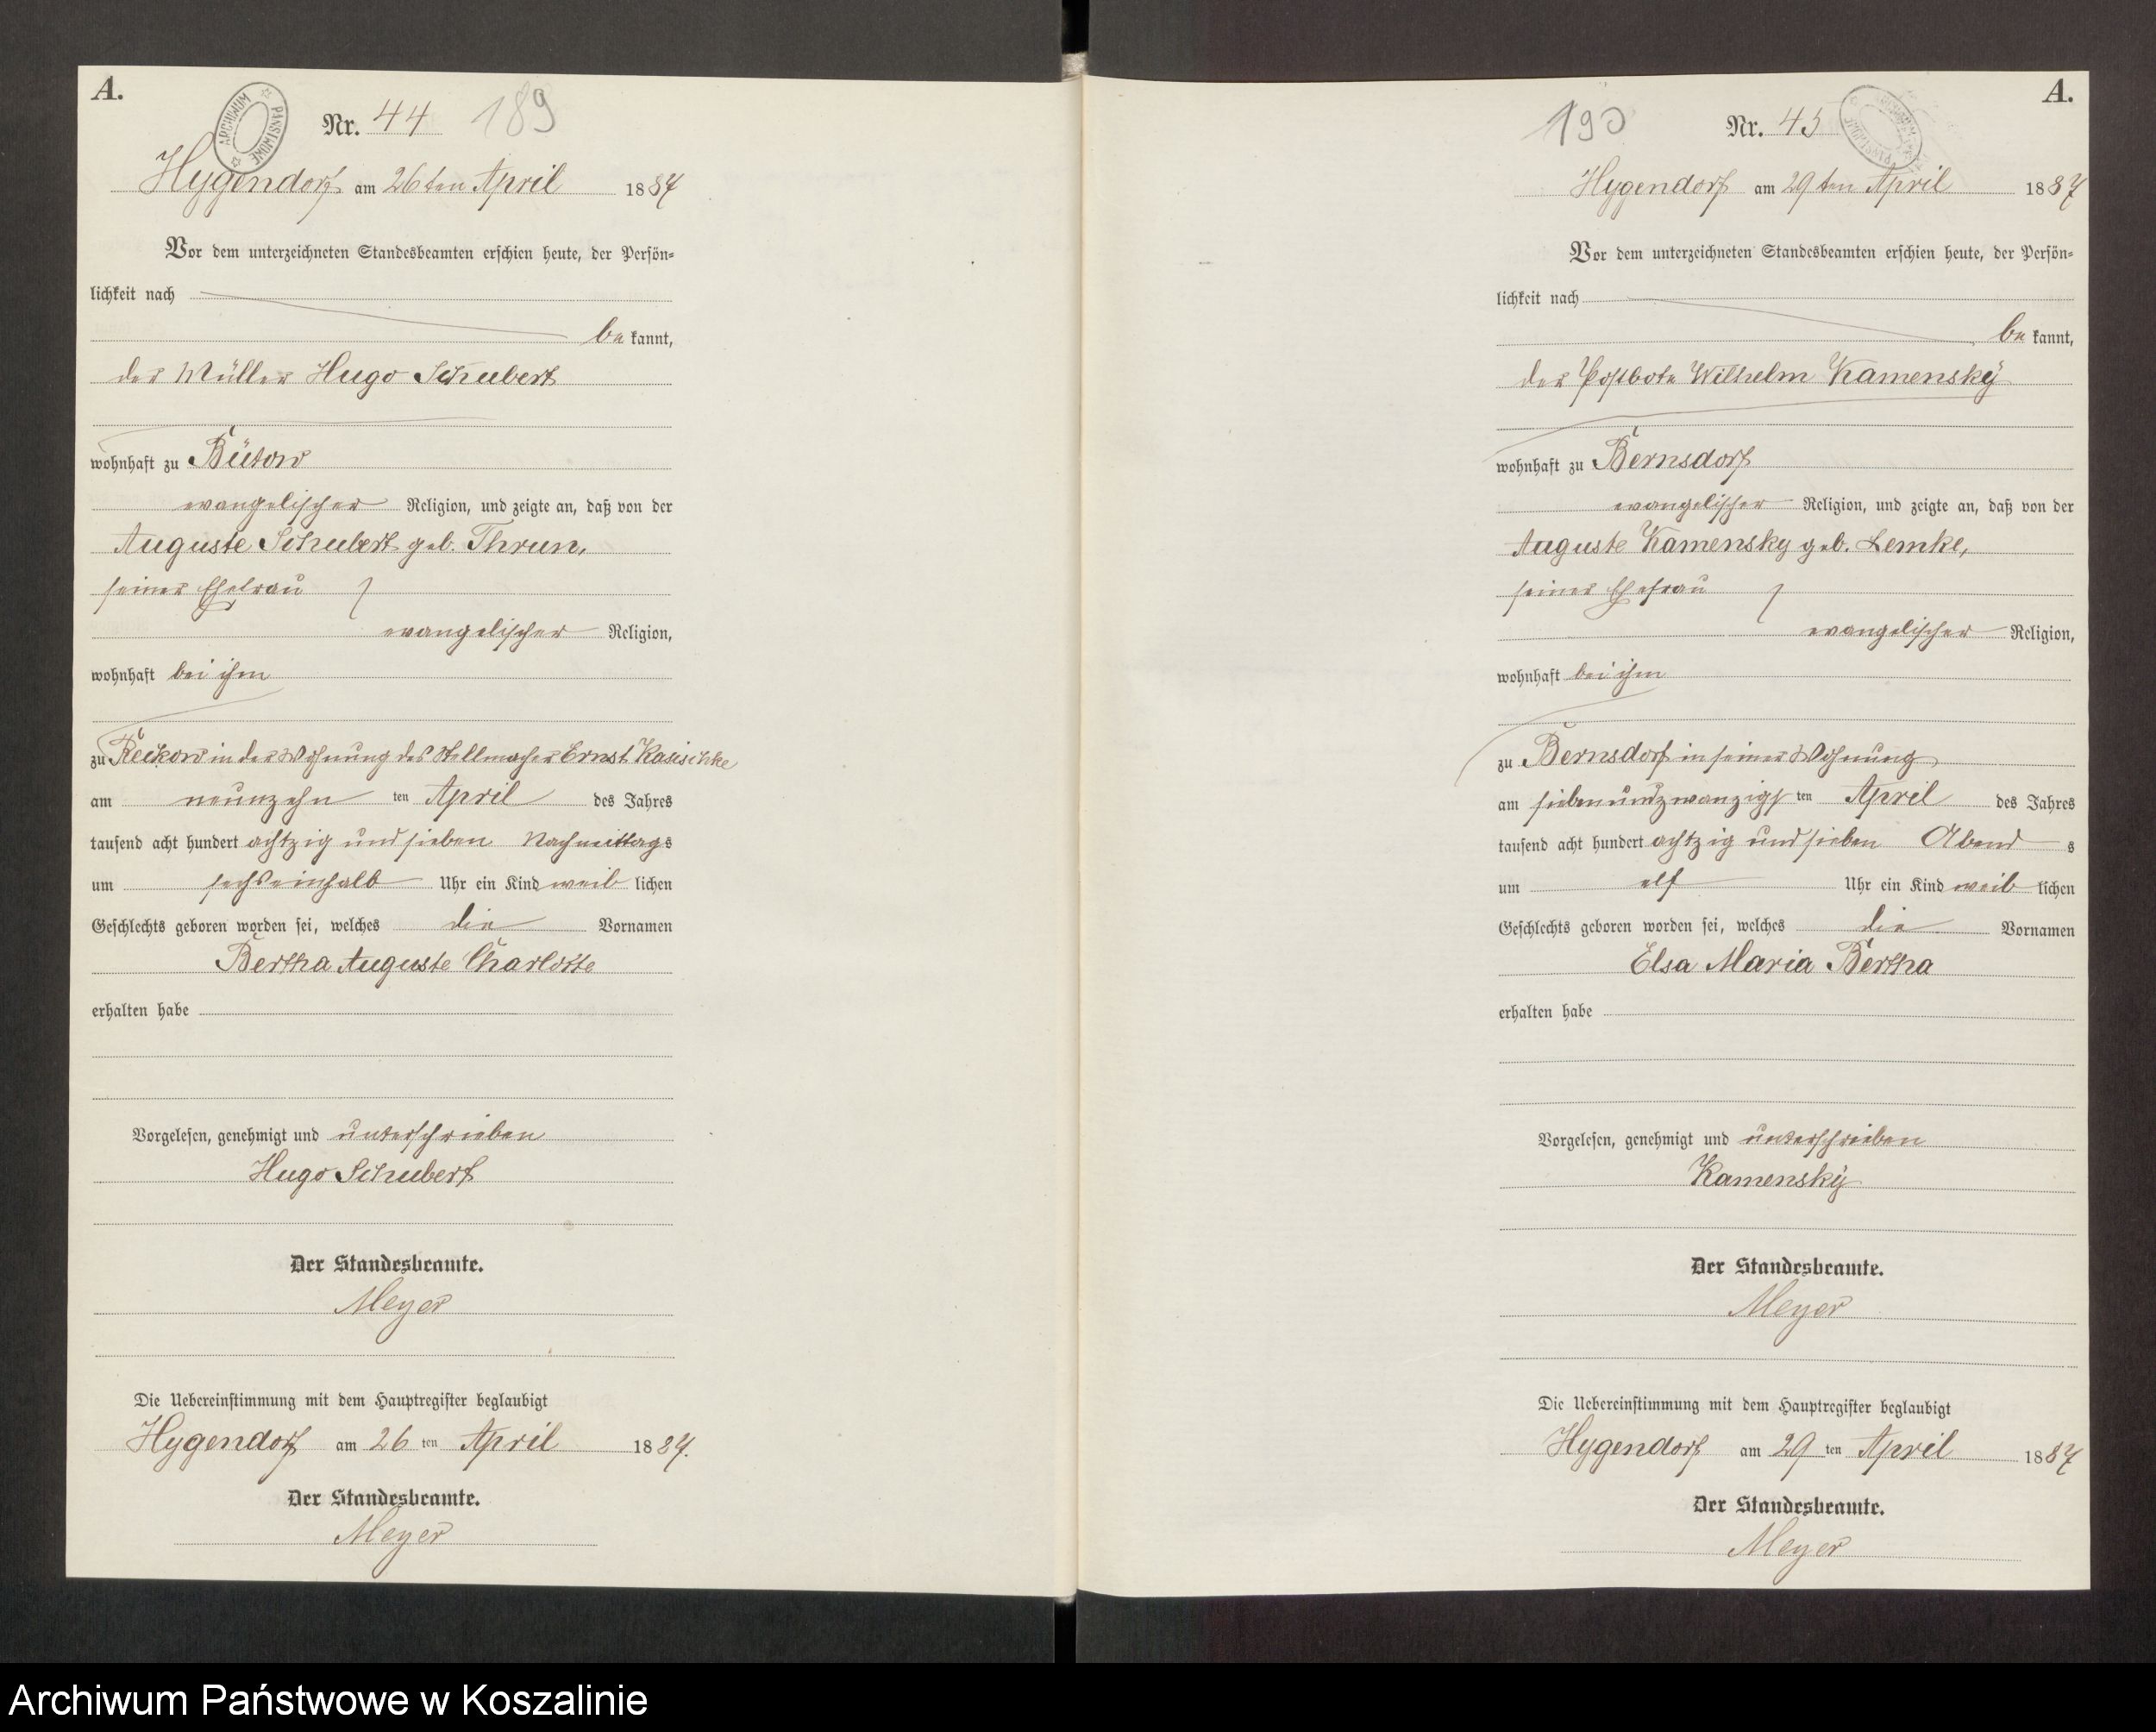 A.
ARCHIWUM PAŃSTWOWE
Nr. 44 189
Hygendorf am 26ten April 1887
Vor dem unterzeichneten Standesbeamten erschien heute, der Persön-
lichkeit nach
be kannt,
der Müller Hugo Schubert
wohnhaft zu Bütow
evangelischer Religion, und zeigte an, daß von der
Auguste Schubert geb. Thrun,
seiner Ehefrau
evangelischer Religion,
wohnhaft bei ihm
zu Reckow in der Wohnung des Stellmacher Ernst Kasischke
am neunzehn ten April des Jahres
tausend acht hundert achtzig und sieben Nachmittags
um sechseinhalb Uhr ein Kind weib lichen
Geschlechts geboren worden sei, welches die Vornamen
Bertha Auguste Charlotte
erhalten habe
Vorgelesen, genehmigt und unterschrieben
Hugo Schubert
Der Standesbeamte.
Meyer
Die Uebereinstimmung mit dem Hauptregister beglaubigt
Hygendorf am 26 ten April 1887.
Der Standesbeamte.
Meyer
A.
190 Nr. 45
ARCHIWUM PAŃSTWOWE
Hygendorf am 29ten April 1887
Vor dem unterzeichneten Standesbeamten erschien heute, der Persön-
lichkeit nach
be kannt,
der Postbote Wilhelm Kamensky
wohnhaft zu Bernsdorf
evangelischer Religion, und zeigte an, daß von der
Auguste Kamensky geb. Lemke,
seiner Ehefrau
evangelischer Religion,
wohnhaft bei ihm
zu Bernsdorf in seiner Wohnung
am siebenundzwanzigs ten April des Jahres
tausend acht hundert achtzig und sieben Abend s
um elf Uhr ein Kind weib lichen
Geschlechts geboren worden sei, welches die Vornamen
Elsa Maria Bertha
erhalten habe
Vorgelesen, genehmigt und unterschrieben
Kamensky
Der Standesbeamte.
Meyer
Die Uebereinstimmung mit dem Hauptregister beglaubigt
Hygendorf am 29 ten April 1887
Der Standesbeamte.
Meyer
Archiwum Państwowe w Koszalinie